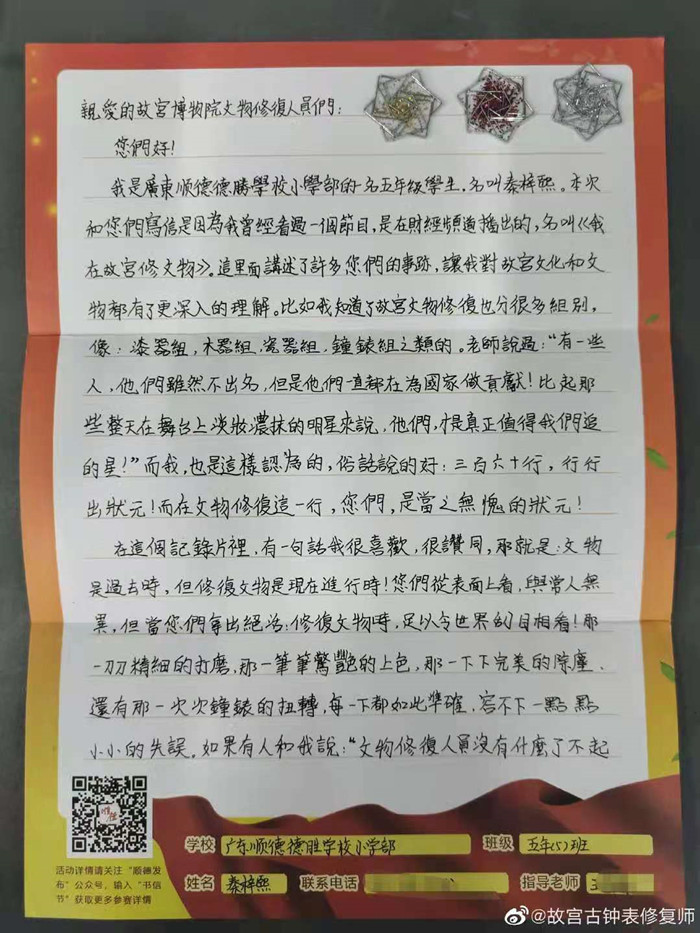 親愛的故宮博物院文物修復人員們：
您們好！
我是廣東順德德勝學校小學部的一名五年級學生，名叫秦梓熙。本次
和您們寫信是因為我曾經看過一個節目，是在財經頻道播出的，名叫《我
在故宮修文物》。這里面講述了許多您們的事跡，讓我對故宮文化和文
物都有了更深入的理解。比如我知道了故宮文物修復也分很多組別，
像：漆器組，木器組，瓷器組，鐘錶組之類的。老師說過：“有一些
人，他們雖然不出名，但是他們一直都在為國家做貢獻！比起那
些整天在舞台上淡妝濃抹的明星來說，他們，才是真正值得我們追
的星！”而我，也是這樣認為的，俗話說的好：三百六十行，行行
出狀元！而在文物修復這一行，您們，是當之無愧的狀元！
在這個記錄片裡，有一句話我很喜歡，很讚同，那就是：文物
是過去時，但修復文物是現在進行時！您們從表面上看，與常人無
異，但當您們拿出絕活：修復文物時，足以令世界刮目相看！那
一刀刀精細的打磨，那一筆筆驚艷的上色，那一下下完美的除塵、
還有那一次次鐘錶的扭轉，每一下都如此準確，容不下一點點
小小的失誤。如果有人和我說：“文物修復人員沒有什麼了不起
学校 广东顺德德胜学校小学部 班级 五年(5)班
活动详情请关注“顺德发
布”公众号，输入“书信
节”获取更多参赛详情
姓名 秦梓熙 联系电话 指导老师
@故宫古钟表修复师